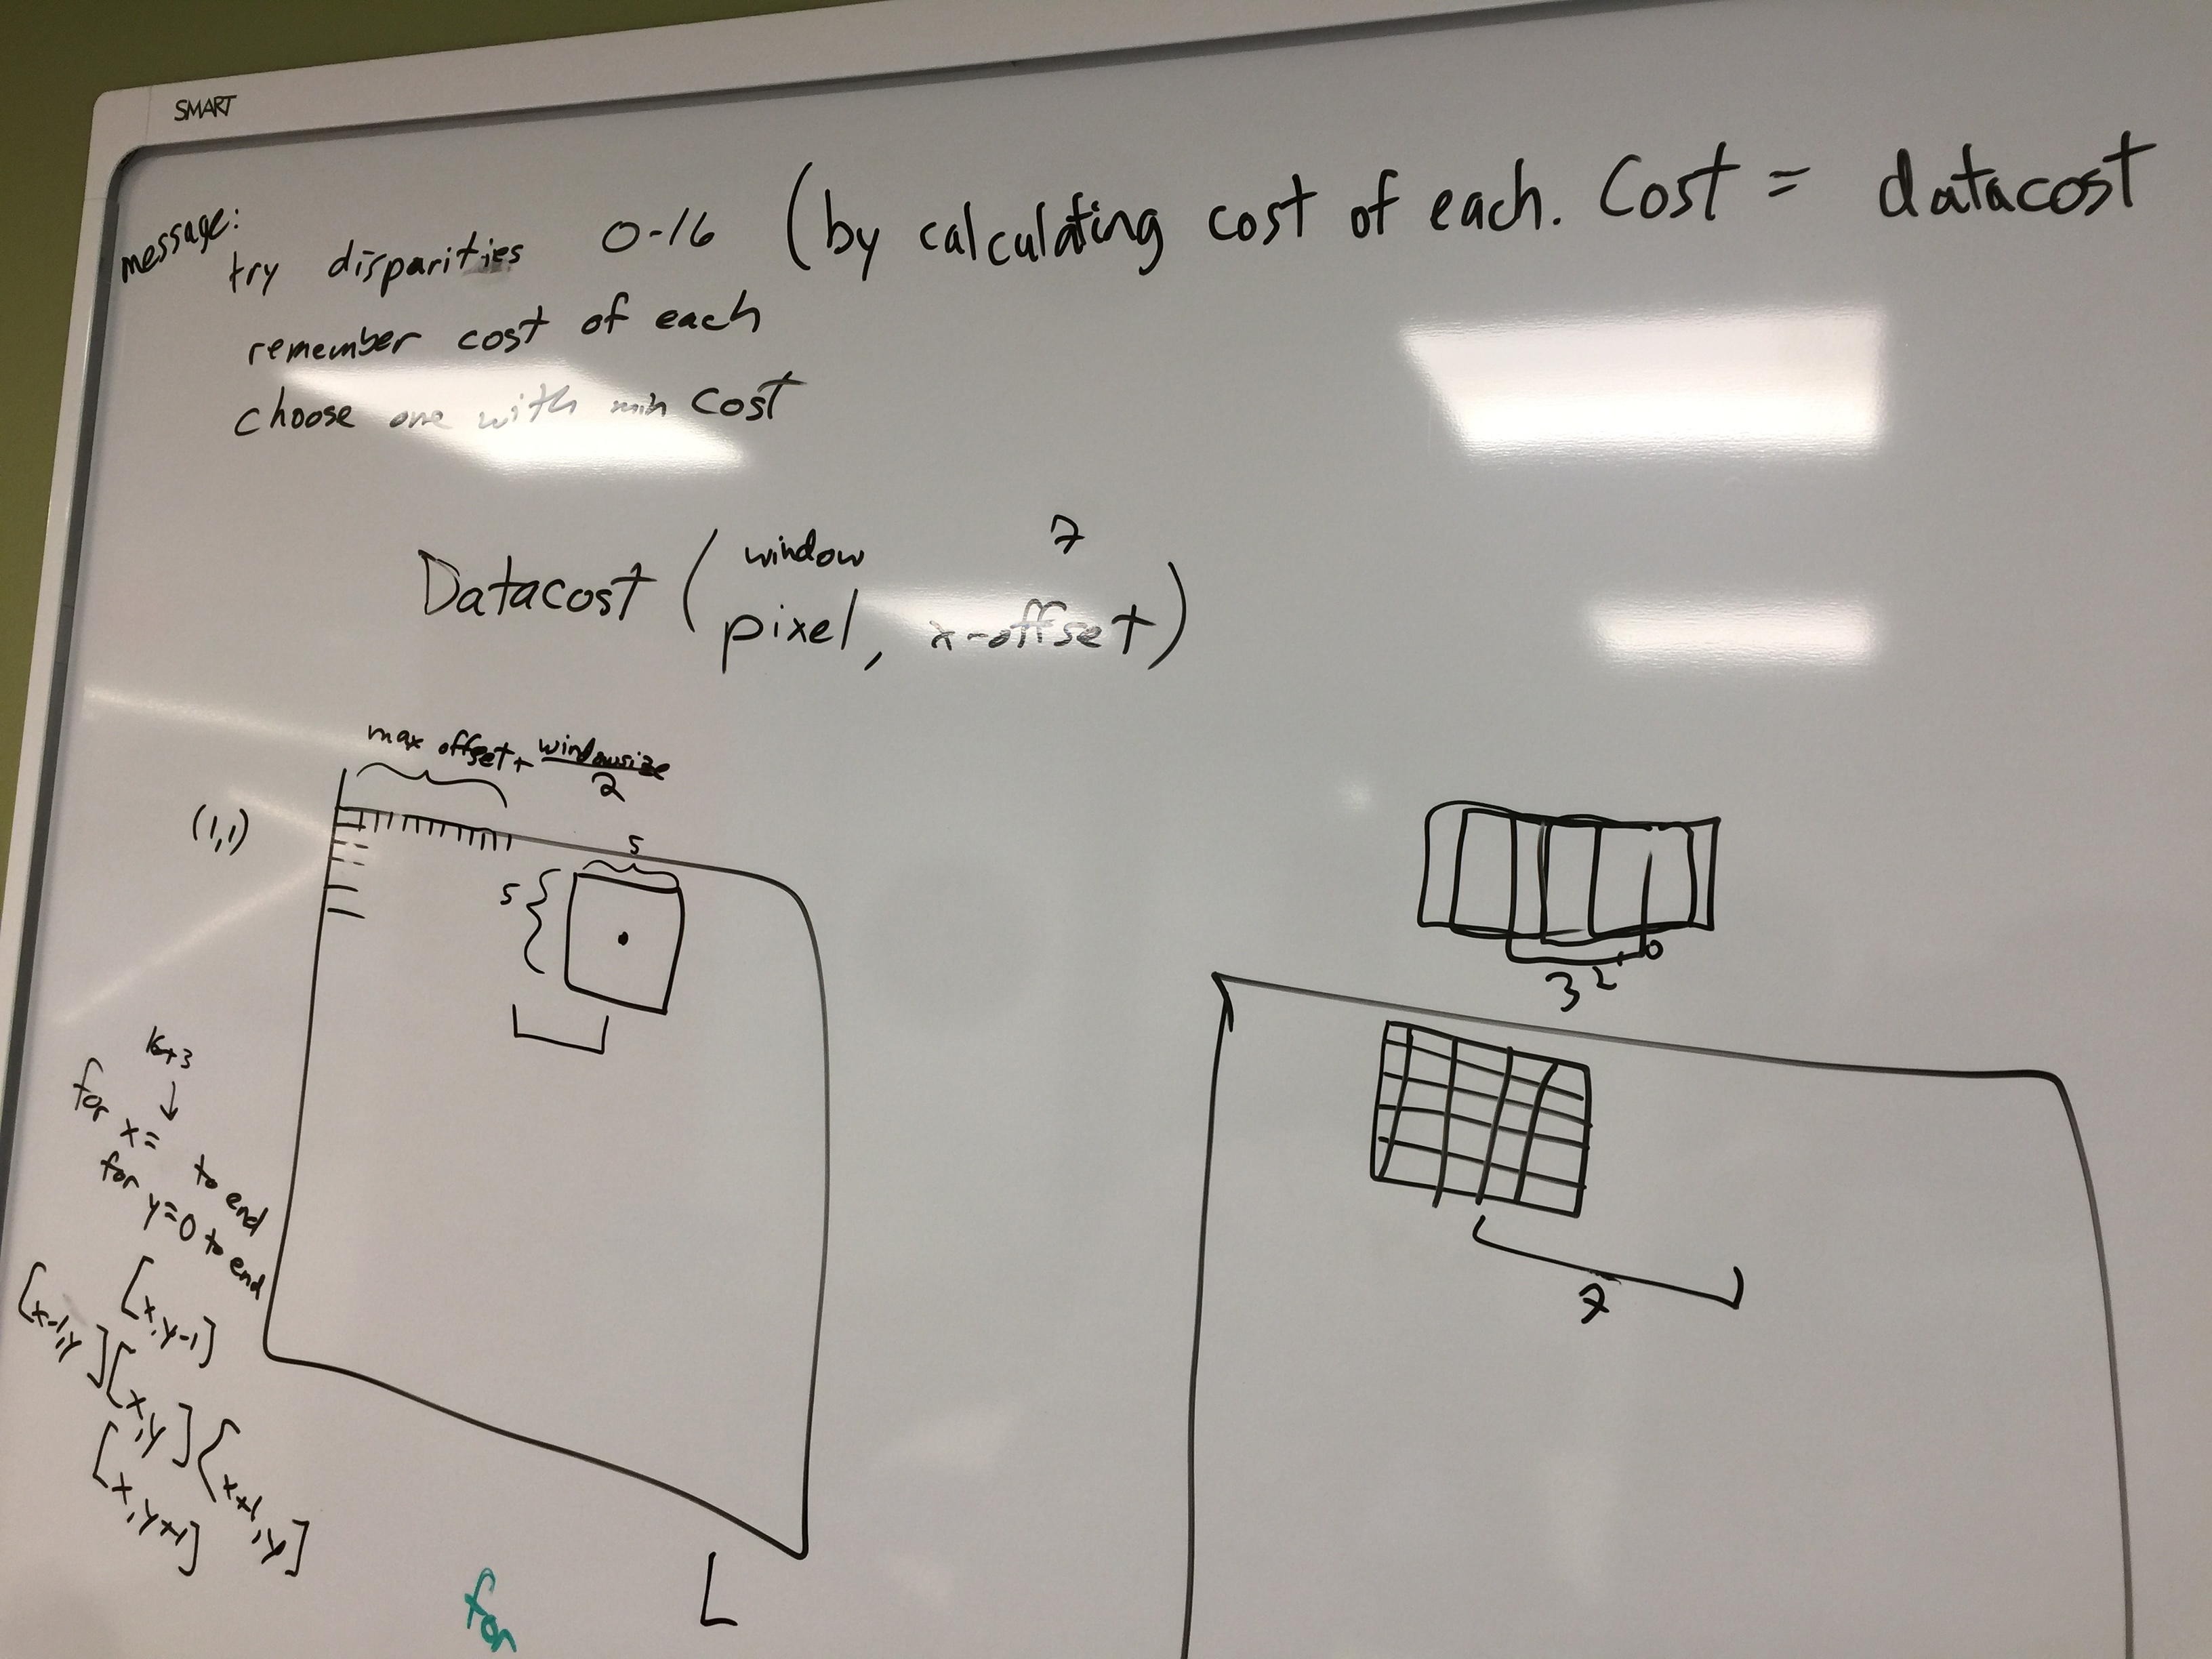 SMART
message:
try disparities 0-16 (by calculating cost of each. Cost = datacost
remember cost of each
choose one with min cost
Datacost (window pixel, x-offset)
7
max offset + windowsize
2
(1,1)
5
5
3 2 0
7
16+3
↓
for x= to end
for y=0 to end
[x,y-1]
[x-1,y] [x,y] [x+1,y]
[x,y+1]
L
for